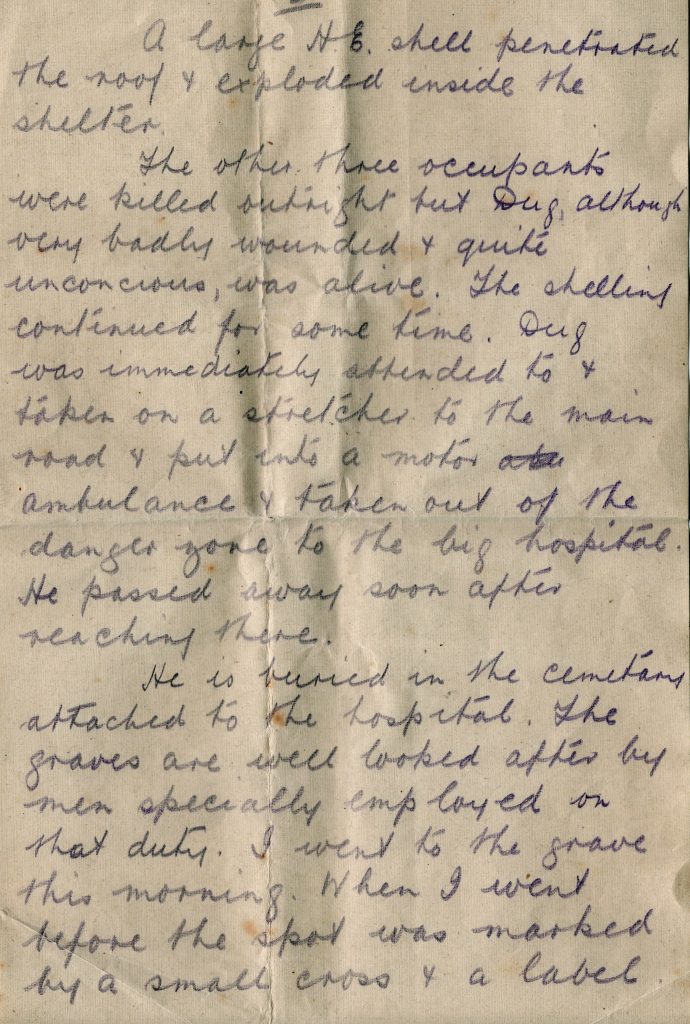 A large H.E. shell penetrated
the roof & exploded inside the
shelter.
The other three occupants
were killed outright but Dug, although
very badly wounded & quite
unconcious, was alive. The shelling
continued for some time. Dug
was immediately attended to &
taken on a stretcher to the main
road & put into a motor
ambulance & taken out of the
danger zone to the big hospital.
He passed away soon after
reaching there.
He is buried in the cemetary
attached to the hospital. The
graves are well looked after by
men specially employed on
that duty. I went to the grave
this morning. When I went
before the spot was marked
by a small cross & a label.